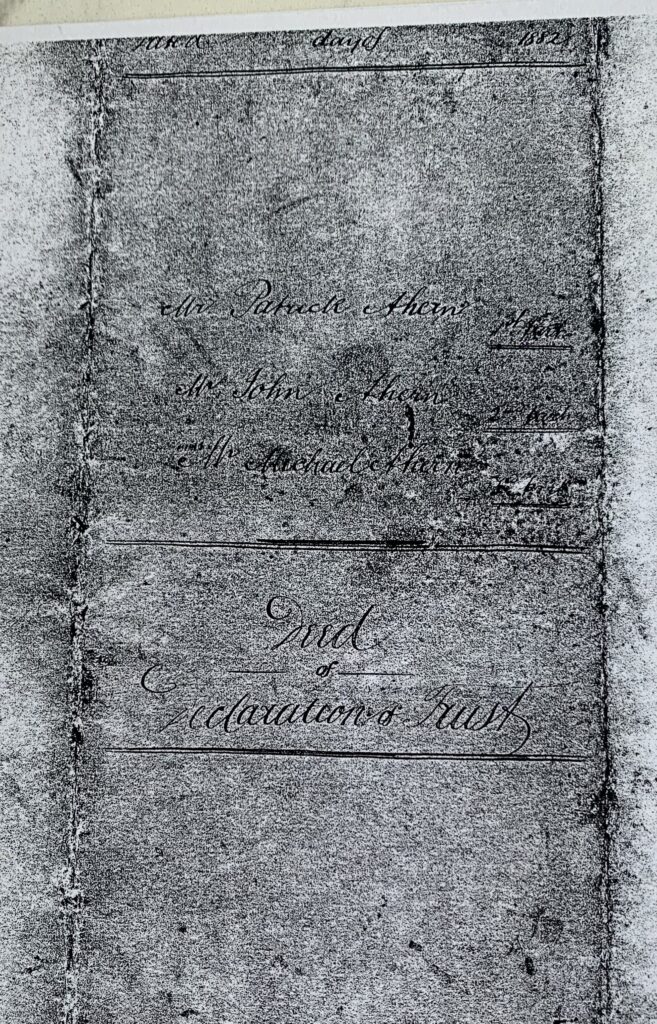 day of 1882
Mr. Patrick Ahern
1st part
Mr. John Ahern
2nd part
Mr. Michael Ahern
part
Deed
of
Declaration of Trust